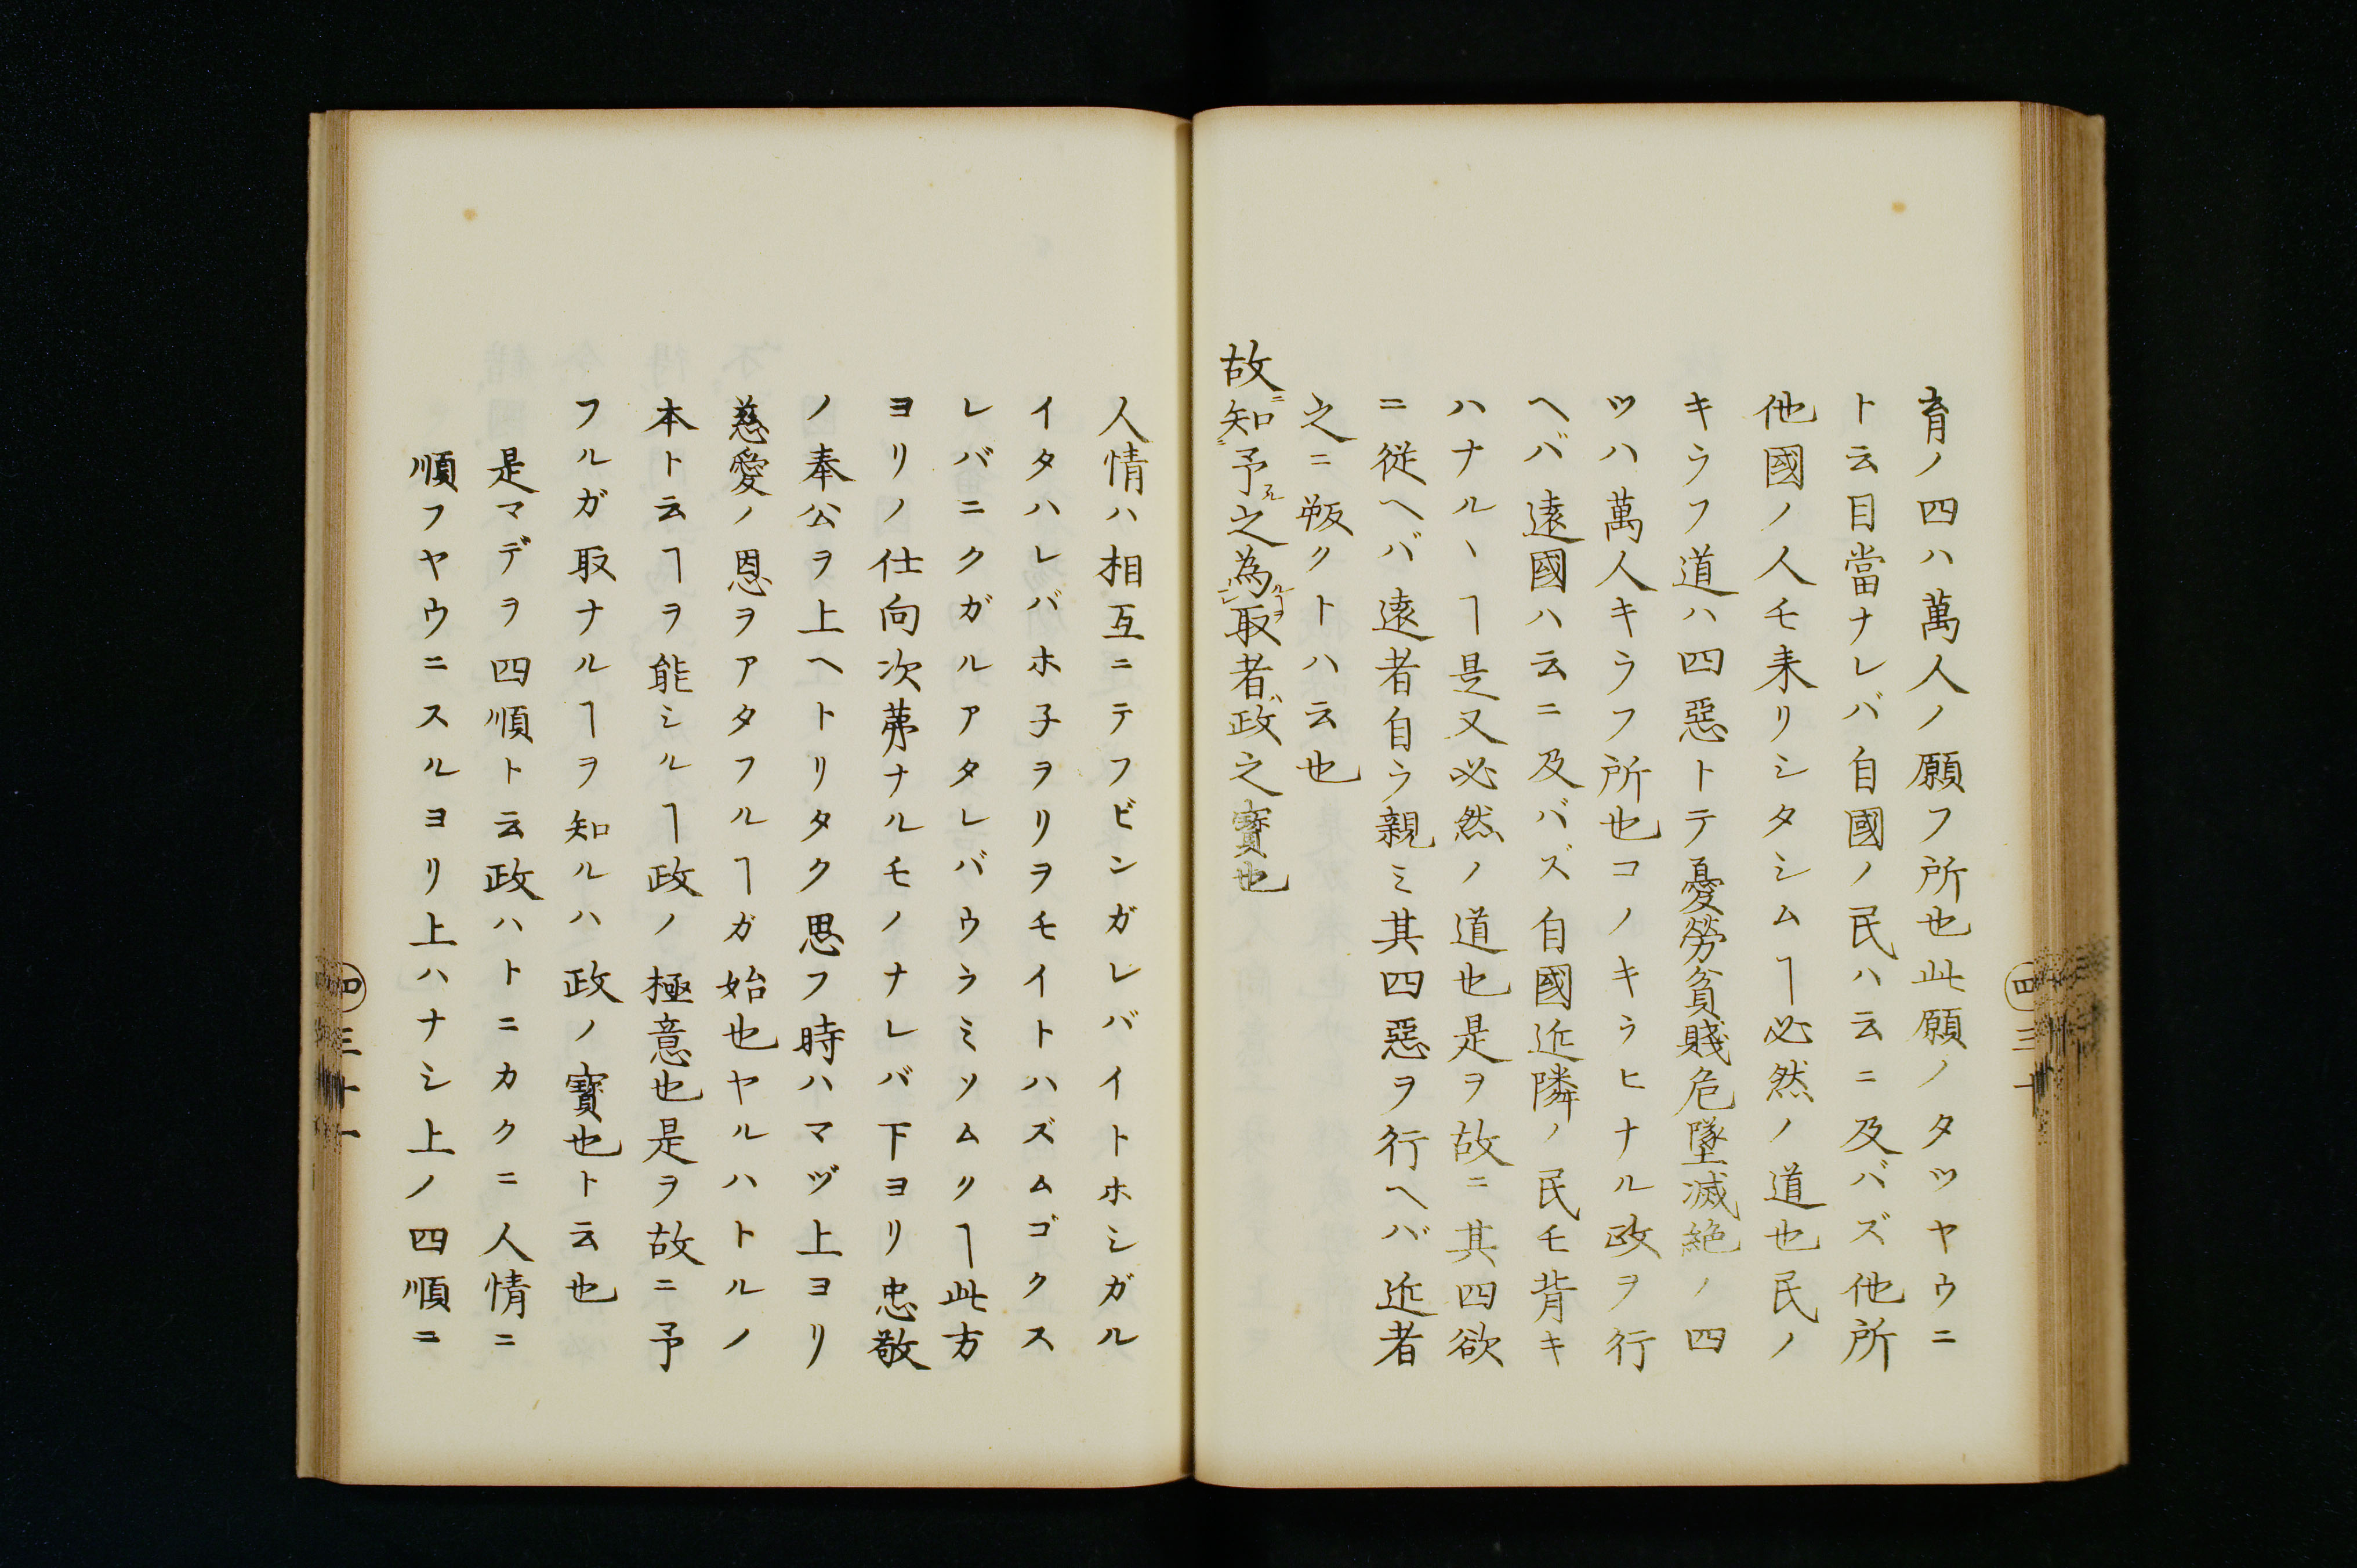 育ノ四ハ萬人ノ願フ所也此願ノタツヤウニ
ト云目當ナレバ自國ノ民ハ云ニ及バズ他所
他國ノ人モ来リシタシムヿ必然ノ道也民ノ
キラフ道ハ四惡トテ憂勞貧賤危墜滅絶ノ四
ツハ萬人キラフ所也コノキラヒナル政ヲ行
ヘバ遠國ハ云ニ及バズ自國近隣ノ民モ背キ
ハナルヽヿ是又必然ノ道也是ヲ故ニ其四欲
ニ従ヘバ遠者自ラ親ミ其四惡ヲ行ヘバ近者
之ニ叛クトハ云也
故ニ知予之為取者政之寶也
人情ハ相互ニテフビンガレバイトホシガル
イタハレバホ子ヲリヲモイトハズムゴクス
レバニクガルアタレバウラミソムクヿ此方
ヨリノ仕向次第ナルモノナレバ下ヨリ忠敬
ノ奉公ヲ上ヘトリタク思フ時ハマヅ上ヨリ
慈愛ノ恩ヲアタフルヿガ始也ヤルハトルノ
本ト云ヿヲ能シルヿ政ノ極意也是ヲ故ニ予
フルガ取ナルヿヲ知ルハ政ノ寶也ト云也
是マデヲ四順ト云政ハトニカクニ人情ニ
順フヤウニスルヨリ上ハナシ上ノ四順ニ
四 三十
四 三十一